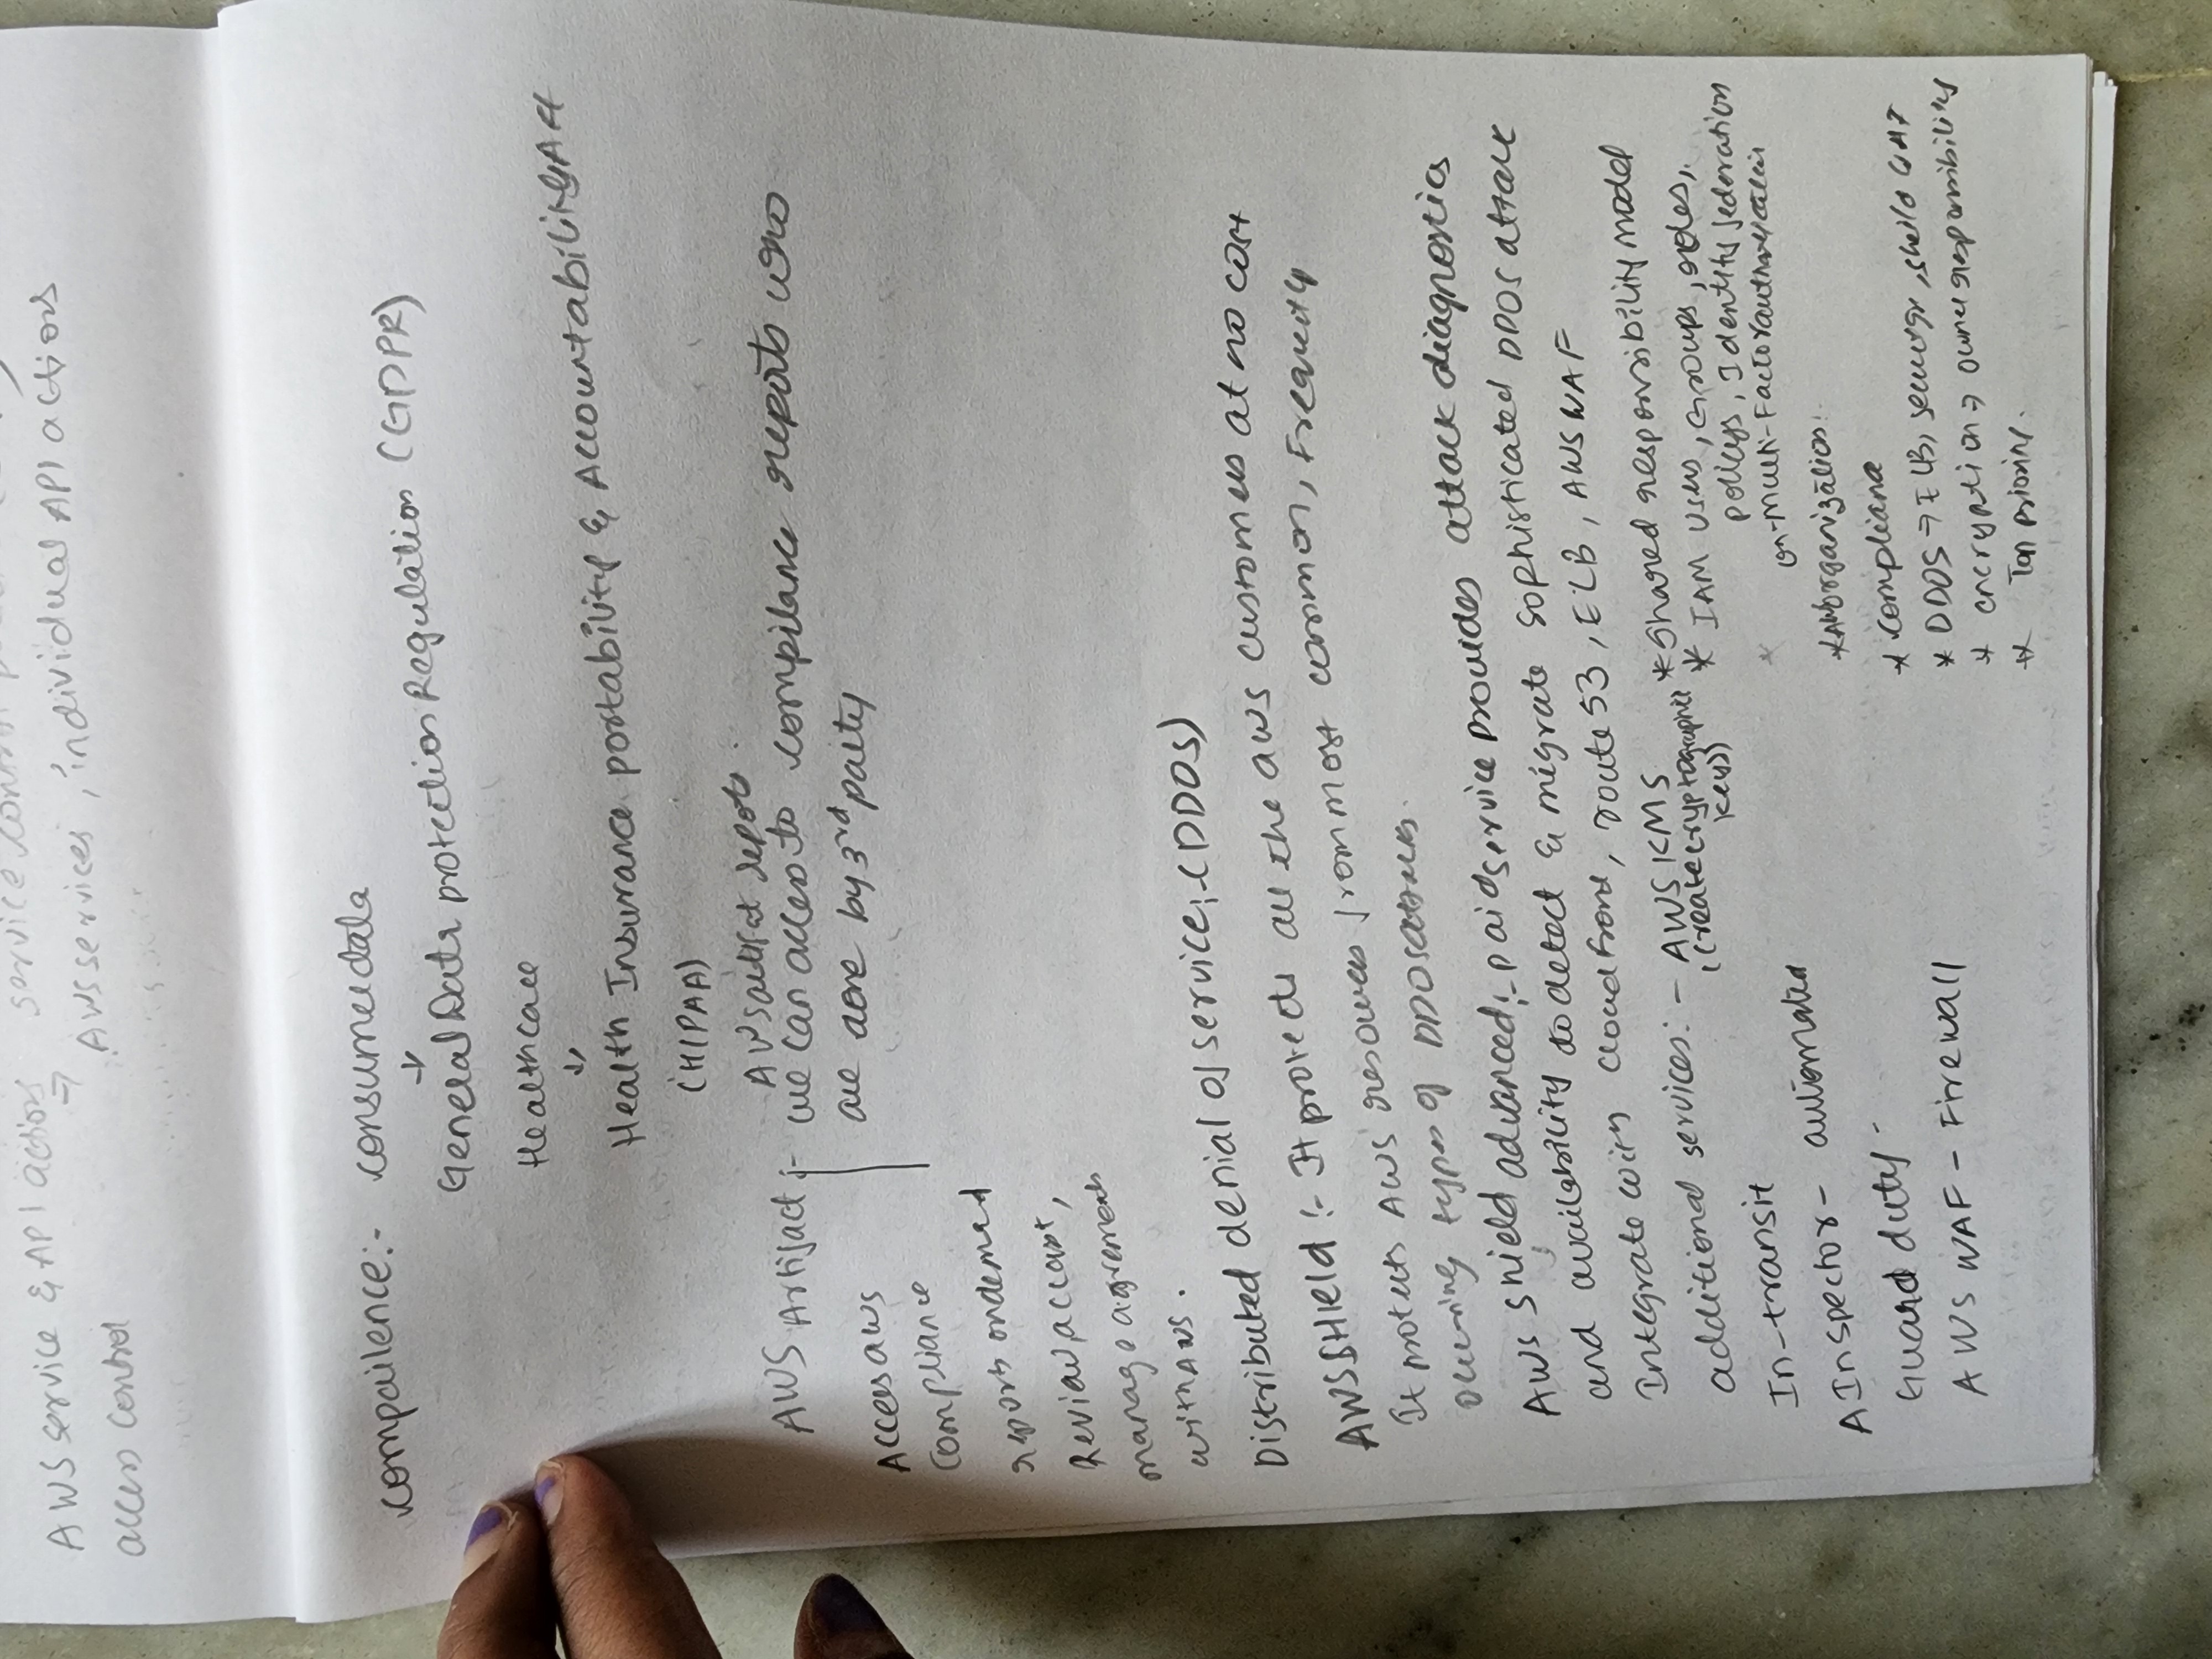 service control
AWS service & API actions ⇒ AWS services, individual API actions
access control
compailence:- consumer data
↓
General Data protection Regulation (GDPR)
Healthcare
↓
Health Insurance portability & Accountability Act
(HIPAA)
AWS artifact repots.
AWS Artifact :- we can access to compilance reports who
are done by 3rd party
Access aws
compliance
reports on demand
Review, accept,
manage agrements
with AWS.
Distributed denial of service:- (DDOS)
AWS SHIeld :- It protects all the aws customers at no cost
It protects AWS resources from most common, Frequently
occuring types of DDOS attacks.
AWS shield advanced:- paid service provides attack diagnostics
and availability to detect & migrate sophisticated DDOS attack
Integrate with cloud front, route 53, ELB, AWS WAF
additional services:- AWS KMS
(create cryptographic
keys))
In-transit
A Inspector - automated
Guard duty -
AWS WAF - Firewall
* Shared responsibility model
* IAM users, Groups, roles,
policys, Identity federation
on-Multi-Factor authentication
* AWS organization.
* compliance
* DDOS → ELB, sheild WAF
* encryption → owner responsibility
*